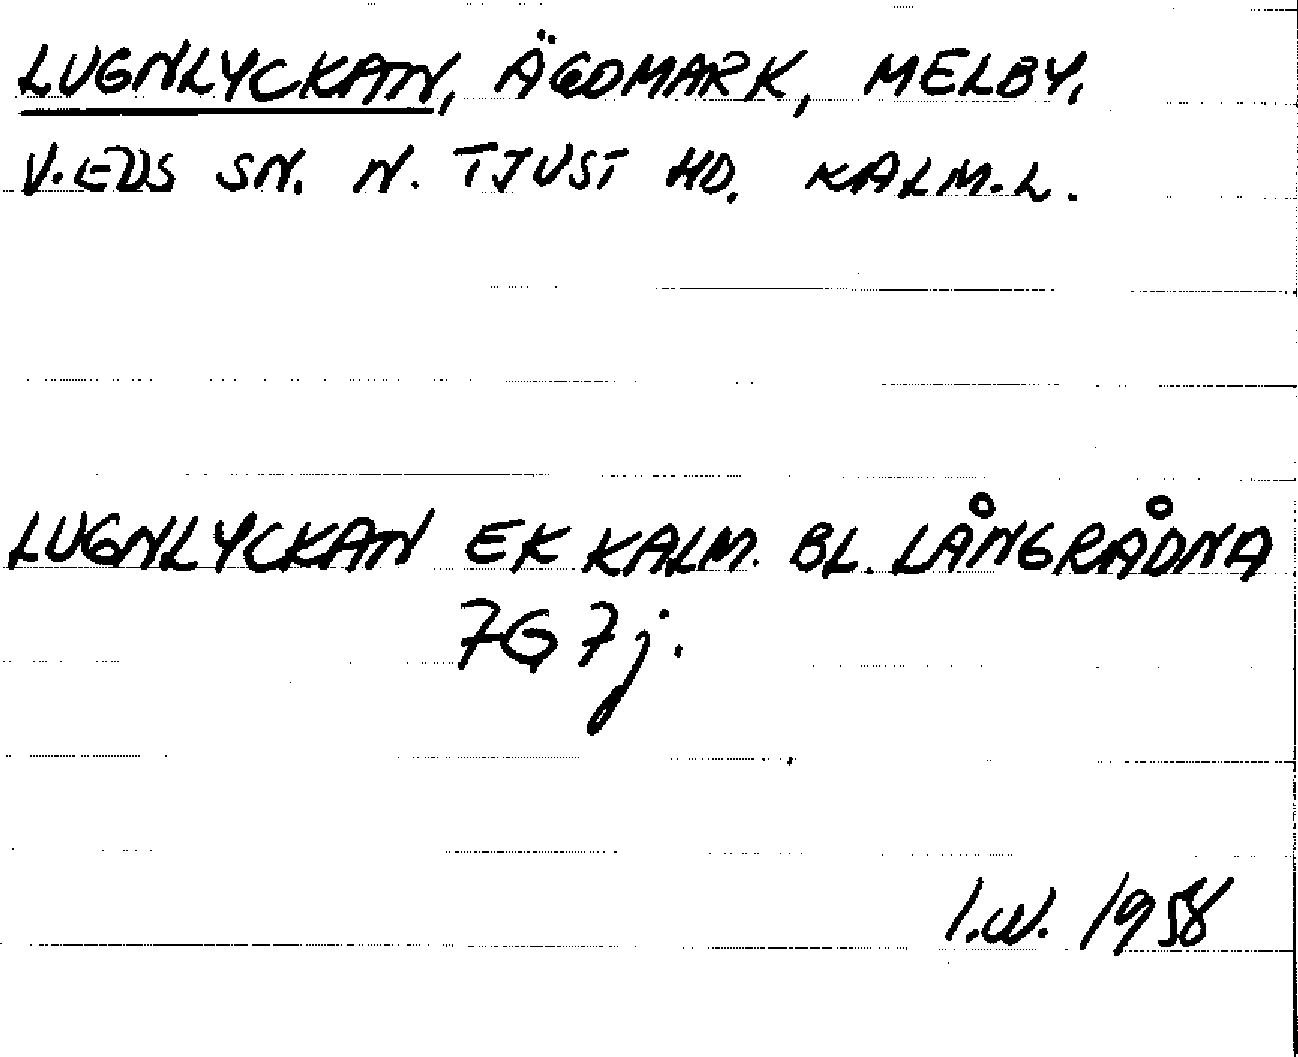 LUGNLYCKAN, ÄGOMARK, MELBY,
V. EDS SN. N. TJUST HD. KALM. L.
LUGNLYCKAN EK KALM. BL. LÅNGRÅDNA
7G 7j.
I.W. 1958